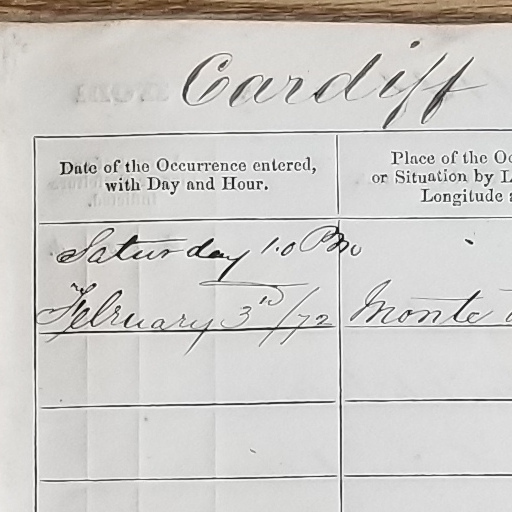 Cardiff
Date of the Occurrence entered,
with Day and Hour.
Place of the Oc
or Situation by L
Longitude a
Saturday 1.0 Pm
February 3rd/72
Monte